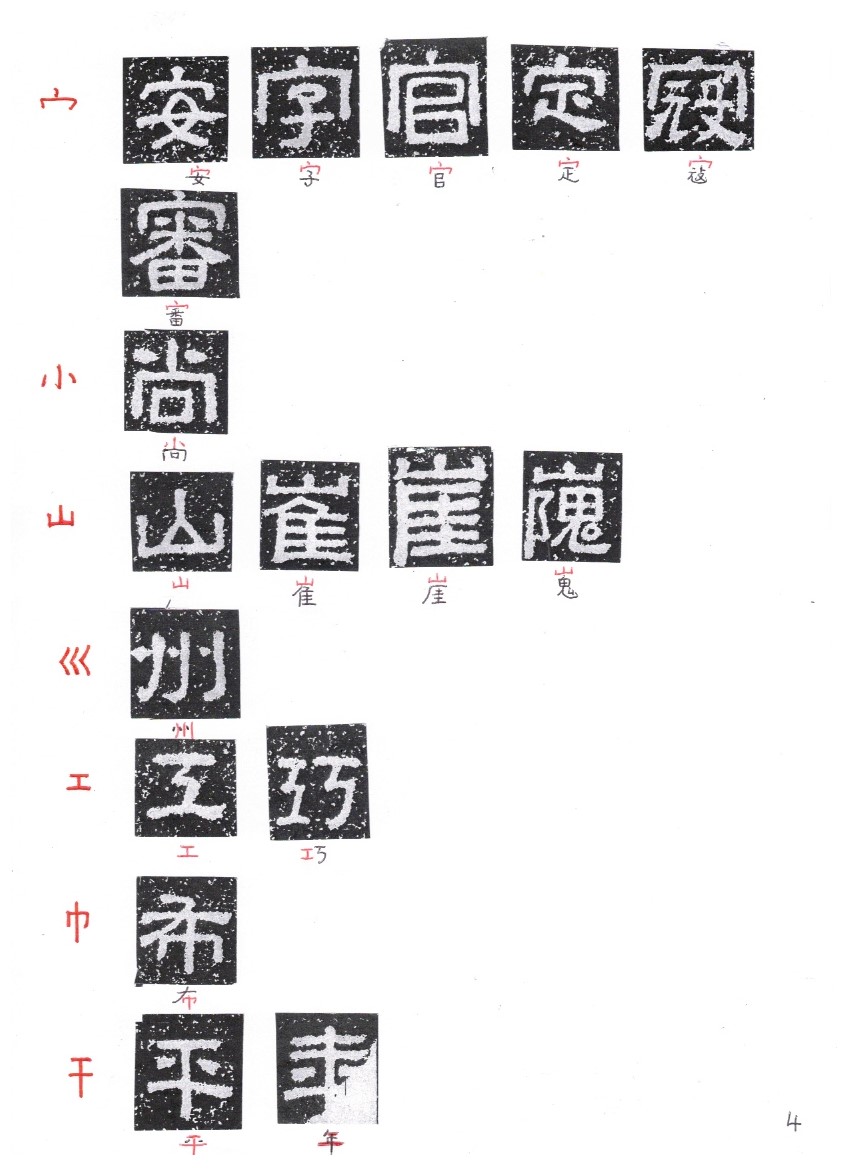 宀 安 字 官 定 寇
安 字 官 定 寇
審
審
小 尚
尚
山 山 崔 崖 嵬
山 崔 崖 嵬
巛 州
州
工 工 巧
工 巧
巾 布
布
干 平 年
平 年
4